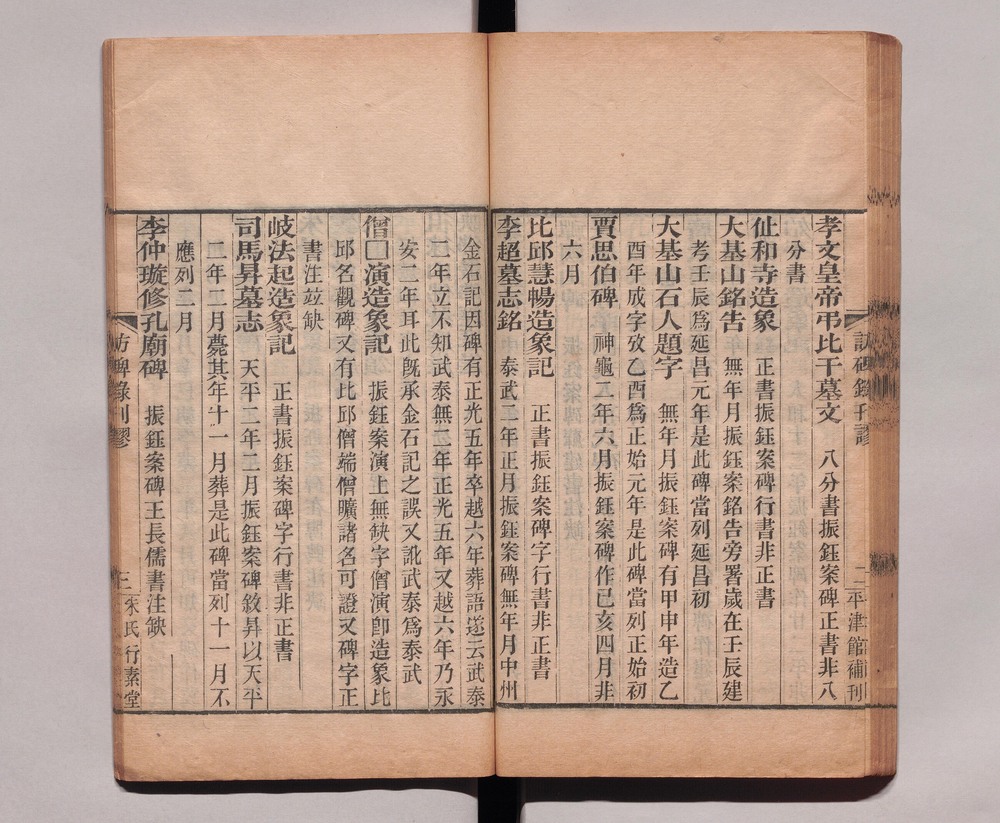 訪碑錄刊謬
二
平津館補刊
孝文皇帝弔比干墓文　八分書振鈺案碑正書非八
分書
仙和寺造象　正書振鈺案碑行書非正書
大基山銘告　無年月振鈺案銘告旁署歲在壬辰建
考壬辰爲延昌元年是此碑當列延昌初
大基山石人題字　無年月振鈺案碑有甲申年造乙
酉年成字攷乙酉爲正始元年是此碑當列正始初
賈思伯碑　神龜二年六月振鈺案碑作己亥四月非
六月
比邱慧暢造象記　正書振鈺案碑字行書非正書
李超墓志銘　泰武二年正月振鈺案碑無年月中州
金石記因碑有正光五年卒越六年葬語遂云武泰
二年立不知武泰無二年正光五年又越六年乃永
安二年耳此旣承金石記之誤又訛武泰爲泰武
僧□演造象記　振鈺案演上無缺字僧演卽造象比
邱名觀碑又有比邱僧端僧曠諸名可證又碑字正
書注竝缺
岐法起造象記　正書振鈺案碑字行書非正書
司馬昇墓志　天平二年二月振鈺案碑敘昇以天平
二年二月薨其年十一月葬是此碑當列十一月不
應列二月
李仲璇修孔廟碑　振鈺案碑王長儒書注缺
訪碑錄刊謬
三
朱氏行素堂